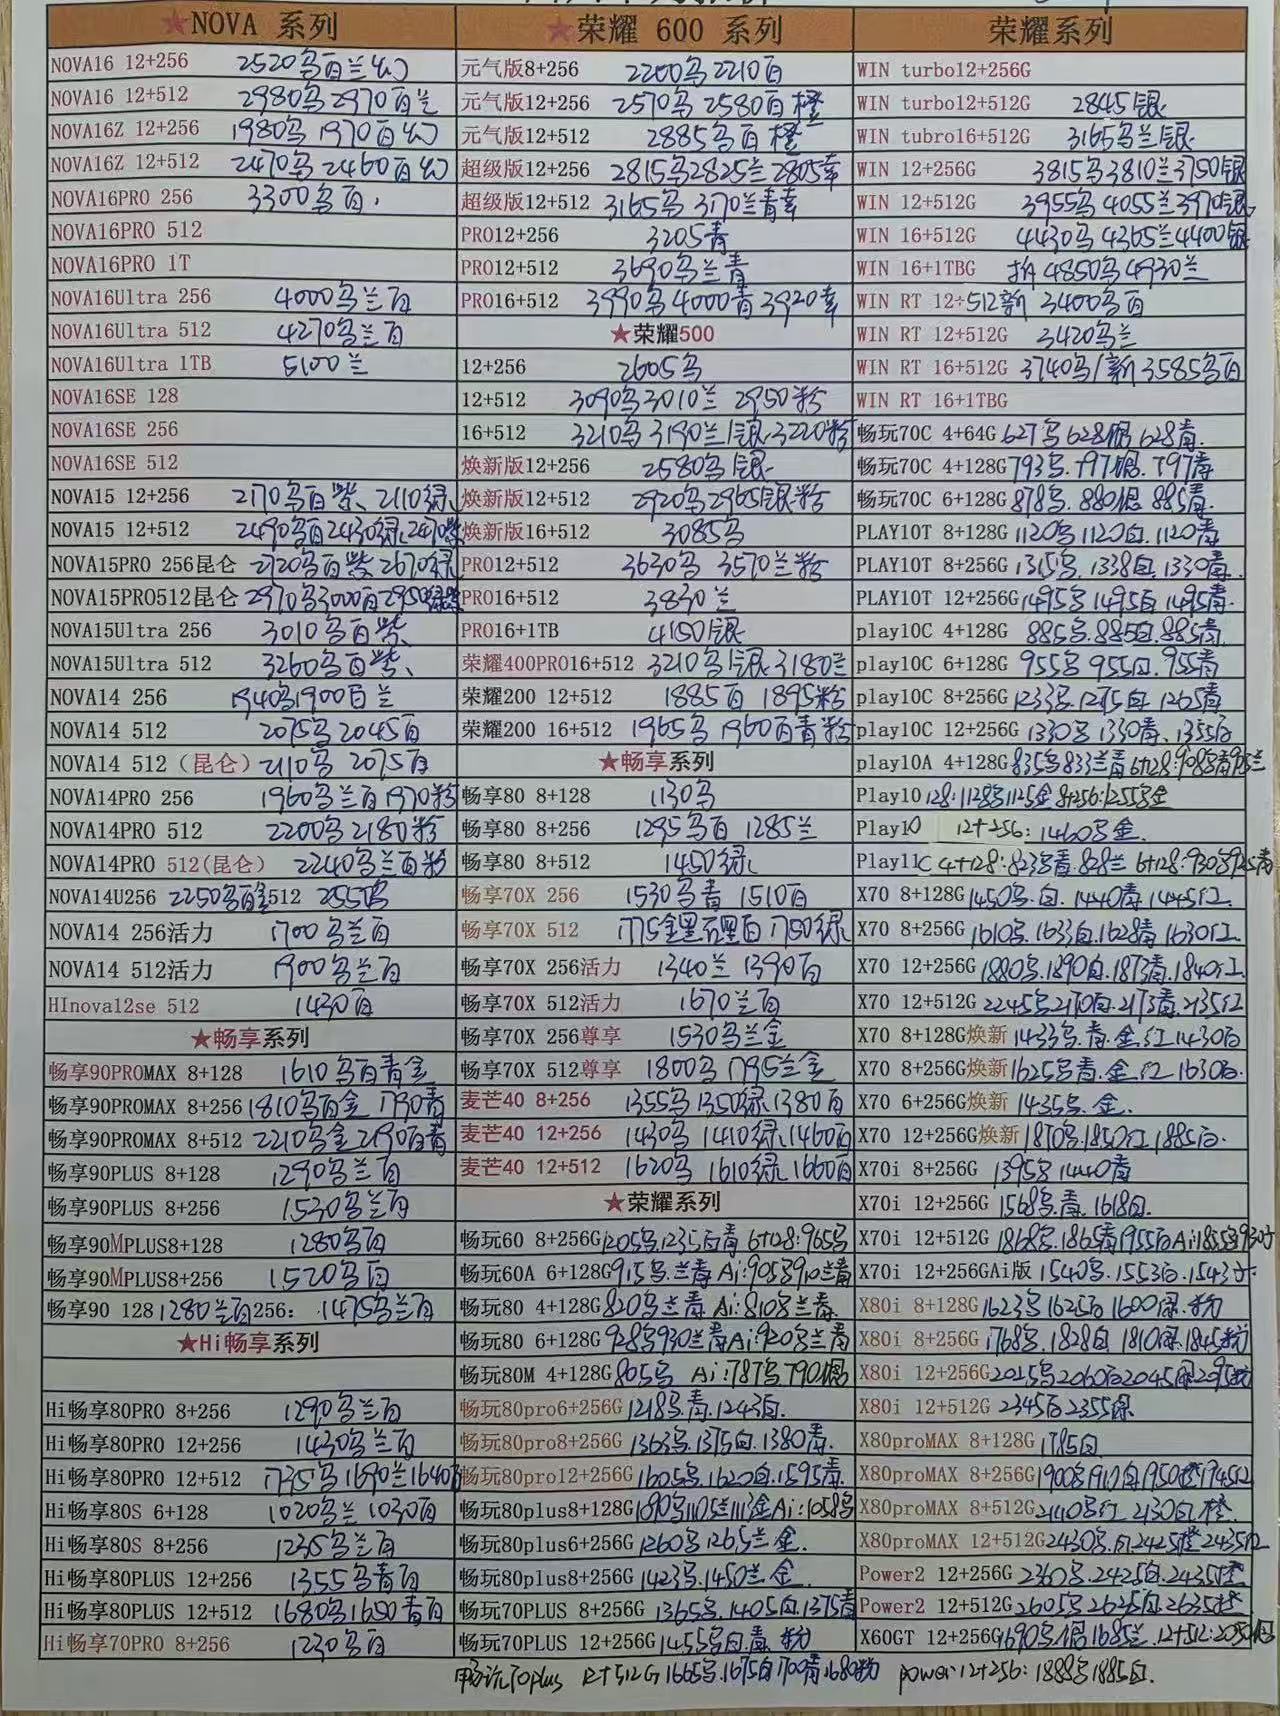 ★NOVA 系列
NOVA16 12+256 2520乌百兰幻
NOVA16 12+512 2980乌2970百兰
NOVA16Z 12+256 1980乌 1970百幻
NOVA16Z 12+512 2470乌 2460百幻
NOVA16PRO 256 3300乌百.
NOVA16PRO 512
NOVA16PRO 1T
NOVA16Ultra 256 4000乌兰百
NOVA16Ultra 512 4270乌兰百
NOVA16Ultra 1TB 5100兰
NOVA16SE 128
NOVA16SE 256
NOVA16SE 512
NOVA15 12+256 2170乌百紫、2110绿
NOVA15 12+512 2490乌百2430绿、2470紫
NOVA15PRO 256昆仑 2720乌百紫 2670绿
NOVA15PRO512昆仑 2970乌3000百2950绿紫
NOVA15Ultra 256 3010乌百紫、
NOVA15Ultra 512 3260乌百紫、
NOVA14 256 1940乌1900百兰
NOVA14 512 2075乌 2045百
NOVA14 512（昆仑） 2110乌 2075百
NOVA14PRO 256 1960乌兰百1970粉
NOVA14PRO 512 2200乌 2180粉
NOVA14PRO 512(昆仑) 2240乌兰百粉
NOVA14U256 2250乌百金512 2555乌
NOVA14 256活力 1700乌兰百
NOVA14 512活力 1900乌兰百
HInova12se 512 1430百
★畅享系列
畅享90PROMAX 8+128 1610乌百青金
畅享90PROMAX 8+256 1810乌百金 1790青
畅享90PROMAX 8+512 2210乌金 2190百青
畅享90PLUS 8+128 1290乌兰百
畅享90PLUS 8+256 1530乌兰百
畅享90MPLUS8+128 1280乌百
畅享90MPLUS8+256 1520乌百
畅享90 128 1280兰百256: 1475乌兰百
★Hi畅享系列
Hi畅享80PRO 8+256 1290乌兰百
Hi畅享80PRO 12+256 1430乌兰百
Hi畅享80PRO 12+512 1735乌1690兰1640百
Hi畅享80S 6+128 1020乌兰 1030百
Hi畅享80S 8+256 1235乌兰百
Hi畅享80PLUS 12+256 1355乌青百
Hi畅享80PLUS 12+512 1680乌1650青百
Hi畅享70PRO 8+256 1230乌百
★荣耀 600 系列
元气版8+256 2200乌2210百
元气版12+256 2570乌 2580百橙
元气版12+512 2885乌百橙
超级版12+256 2815乌2825兰2805幸
超级版12+512 3165乌 3170兰青幸
PRO12+256 3205青
PRO12+512 3690乌兰青
PRO16+512 3990乌4000青3920幸
★荣耀500
12+256 2605乌
12+512 3090乌3010兰 2950粉
16+512 3210乌3190兰银.3220粉
焕新版12+256 2580乌银
焕新版12+512 2920乌2965银粉
焕新版16+512 3085乌
PRO12+512 3630乌 3570兰粉
PRO16+512 3830兰
PRO16+1TB 4150银
荣耀400PRO16+512 3210乌银.3180兰
荣耀200 12+512 1885百 1895粉
荣耀200 16+512 1965乌 1960百青粉
★畅享系列
畅享80 8+128 1130乌
畅享80 8+256 1295乌百 1285兰
畅享80 8+512 1450绿
畅享70X 256 1530乌青 1510百
畅享70X 512 1775金黑 百 1750绿
畅享70X 256活力 1340兰 1390百
畅享70X 512活力 1670兰百
畅享70X 256尊享 1530乌兰金
畅享70X 512尊享 1800乌 1795兰金
麦芒40 8+256 1355乌1350绿.1380百
麦芒40 12+256 1430乌 1410绿.1460百
麦芒40 12+512 1620乌 1610绿.1660百
★荣耀系列
畅玩60 8+256G1205乌.1235百青 6+128:965乌
畅玩60A 6+128G915乌.兰青 Ai:905乌910兰青
畅玩80 4+128G820乌兰青 Ai:810乌兰青
畅玩80 6+128G928乌930兰青Ai:920乌兰青
畅玩80M 4+128G805乌 Ai:787乌.790银
畅玩80pro6+256G1218乌.青.1243白.
畅玩80pro8+256G1363乌.1375白.1380青.
畅玩80pro12+256G1605乌.1620白.1595青.
畅玩80plus8+128G1090乌1105兰1113金Ai:1058乌
畅玩80plus6+256G1260乌1265兰金.
畅玩80plus8+256G1423乌.1450兰.金.
畅玩70PLUS 8+256G1365乌.1405白.1375青
畅玩70PLUS 12+256G1455乌白.青.粉
荣耀系列
WIN turbo12+256G
WIN turbo12+512G 2845银
WIN tubro16+512G 3165乌兰银
WIN 12+256G 3815乌3810兰3750银
WIN 12+512G 3955乌 4055兰3970银
WIN 16+512G 4430乌 4365兰4400银
WIN 16+1TBG 拆 4850乌4930兰
WIN RT 12+512新 3400乌百
WIN RT 12+512G 3420乌兰
WIN RT 16+512G 3740乌/新 3585乌百
WIN RT 16+1TBG
畅玩70C 4+64G 627乌 628银 628青.
畅玩70C 4+128G793乌.797银.797青
畅玩70C 6+128G878乌.880银.885青.
PLAY10T 8+128G1120乌1120白.1120青
PLAY10T 8+256G1315乌.1338白.1330青.
PLAY10T 12+256G1495乌 1495白 1495青.
play10C 4+128G 885乌.885白.885青.
play10C 6+128G 955乌 955白.955青
play10C 8+256G1233乌.1275白.1265青
play10C 12+256G 1330乌 1330青、1355白
play10A 4+128G835乌833兰青 6+128:908乌青915兰
Play10 128:1128乌1125金 8+256:1255乌金
Play10 12+256: 1460乌金.
Play11C 4+128:823乌青.828兰 6+128:930乌925青
X70 8+128G1450乌.白.1440青 1445红.
X70 8+256G 1610乌.1633白.1628青 1630红.
X70 12+256G1880乌.1890白.1873青.1840红
X70 12+512G2245乌2170白.2173青.2135红
X70 8+128G焕新1433乌.青.金.红1430百
X70 8+256G焕新1625乌青.金.红 1630白.
X70 6+256G焕新 1435乌.金.
X70 12+256G焕新 1870乌.1850红.1885白.
X70i 8+256G 1395乌 1440青
X70i 12+256G 1568乌.青.1618白.
X70i 12+512G1868乌.1865青1955白Ai:1855乌930
X70i 12+256GAi版 1540乌.1553白.1543
X80i 8+128G1623乌1625白1600绿.粉
X80i 8+256G1768乌.1828白 1810绿.1845粉
X80i 12+256G2025乌2060白2045绿2095粉
X80i 12+512G 2345白2355绿
X80proMAX 8+128G 1785白
X80proMAX 8+256G1900乌1910白1950橙1945红
X80proMAX 8+512G2440乌红.2430白.橙.
X80proMAX 12+512G2430乌.白2425橙2435红
Power2 12+256G 2360乌.2425白.2435橙
Power2 12+512G2605乌2625白.2635橙
X60GT 12+256G1690乌.银1685兰.12+512:2050
畅玩70plus 12+512G1665乌.1675白1700青1680粉 power:12+256:1888乌1885白.